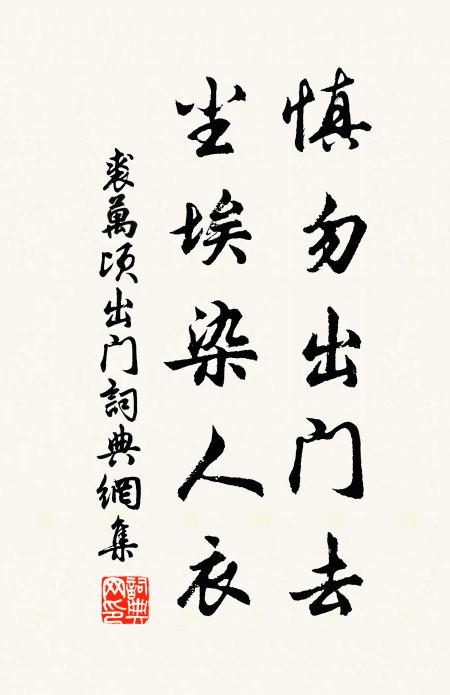 慎勿出门去
尘埃染人衣
裘萬顷出门詞典網集
詞典网印